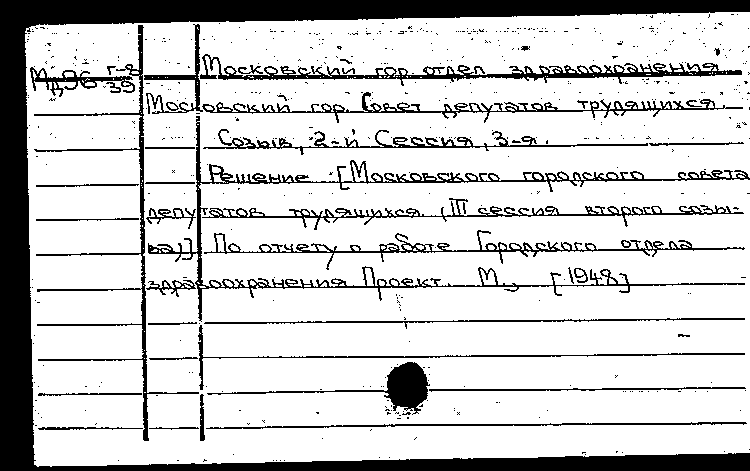 Мд96 г-8/39 Московский гор. отдел здравоохранения
Московский гор. Совет депутатов трудящихся.
Созыв, 2-й Сессия, 3-я.
Решение [Московского городского совета
депутатов трудящихся (III сессия второго созы-
ва)] По отчету о работе Городского отдела
здравоохранения Проект. М., [1948]